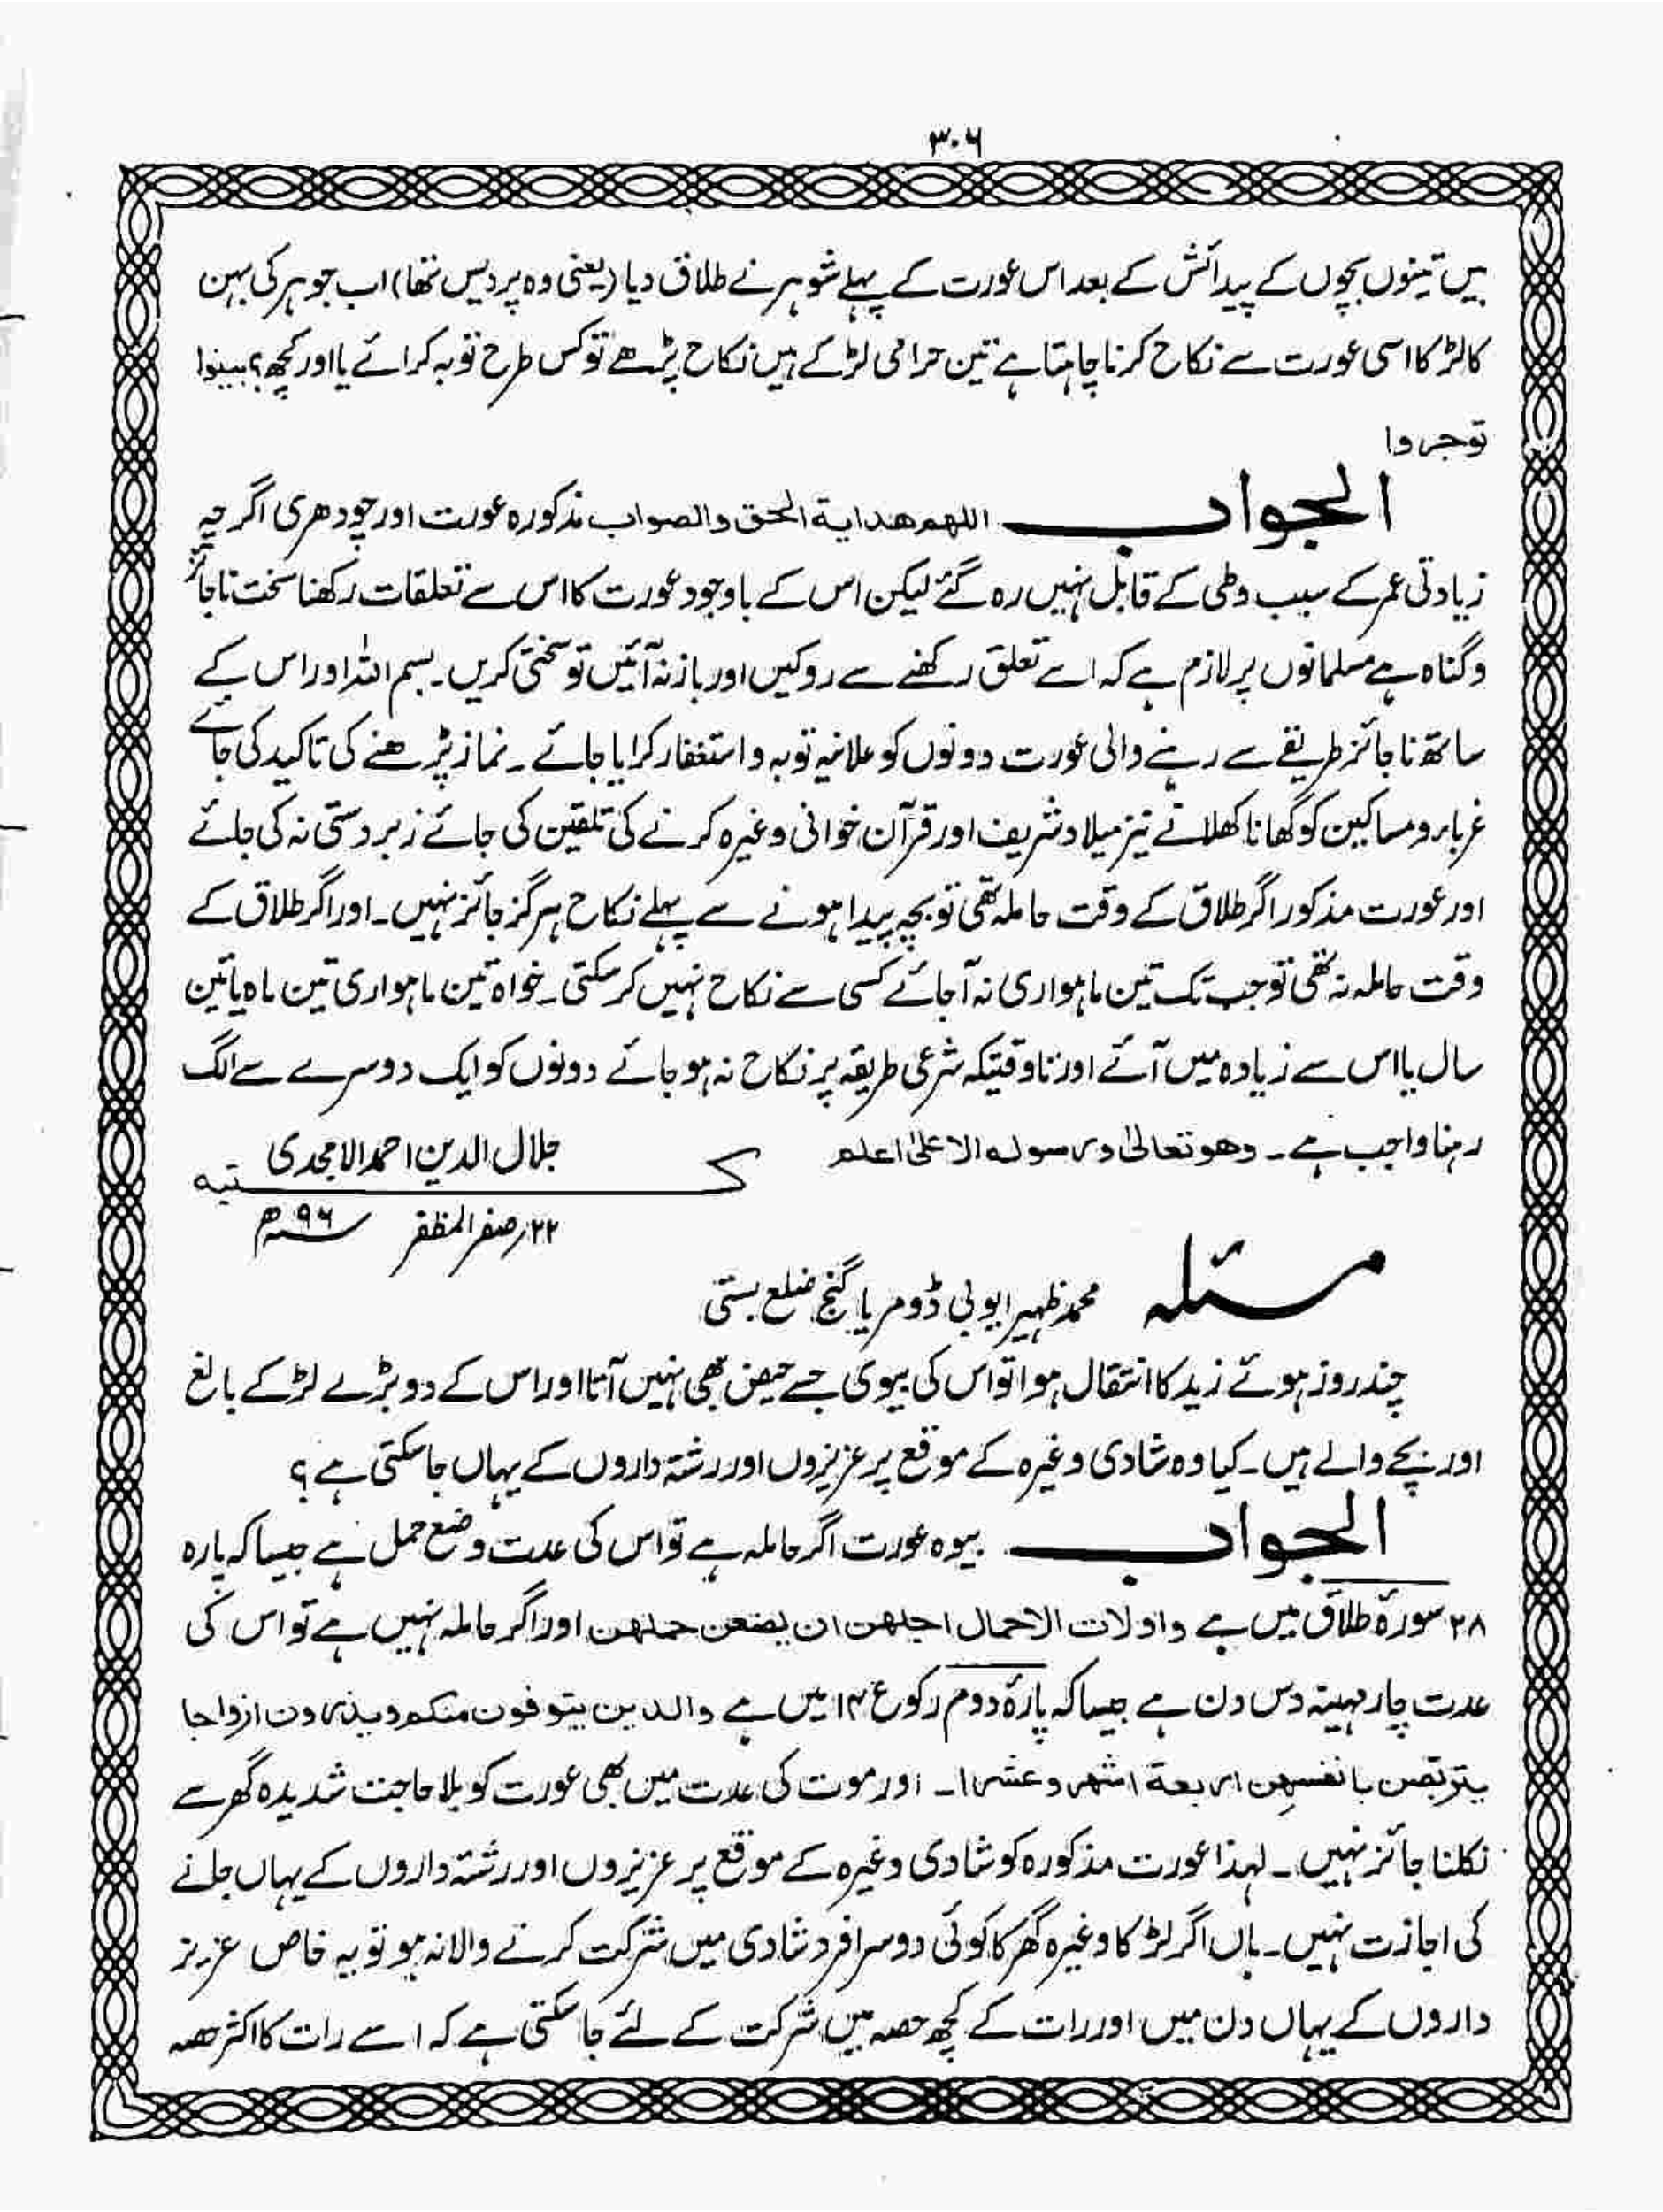 ۳۰۶
ہیں تینوں بچوں کے پیدائش کے بعد اس عورت کے پہلے شوہر نے طلاق دیا (یعنی وہ پردیس تھا) اب جوہر کی بہن
کا لڑکا اسی عورت سے نکاح کرنا چاہتا ہے تین حرامی لڑکے ہیں نکاح پڑھے تو کس طرح توبہ کرائے یا اور کچھ؟ بینوا
توجروا
الجواب اللھم ھدایۃ الحق والصواب مذکورہ عورت اور چودھری اگرچہ
زیادتی عمر کے سبب وطی کے قابل نہیں رہ گئے لیکن اس کے باوجود عورت کا اس سے تعلقات رکھنا سخت ناجائز
و گناہ ہے مسلمانوں پر لازم ہے کہ اسے تعلق رکھنے سے روکیں اور باز نہ آئیں تو سختی کریں۔ بسم اللہ اور اس کے
ساتھ ناجائز طریقے سے رہنے والی عورت دونوں کو علانیہ توبہ و استغفار کرایا جائے۔ نماز پڑھنے کی تاکید کی جائے
غرباء و مساکین کو کھانا کھلانے نیز میلاد شریف اور قرآن خوانی وغیرہ کرنے کی تلقین کی جائے زبردستی نہ کی جائے
اور عورت مذکور اگر طلاق کے وقت حاملہ تھی تو بچہ پیدا ہونے سے پہلے نکاح ہرگز جائز نہیں۔ اور اگر طلاق کے
وقت حاملہ نہ تھی تو جب تک تین ماہواری نہ آجائے کسی سے نکاح نہیں کرسکتی۔ خواہ تین ماہواری تین ماہ یا تین
سال یا اس سے زیادہ میں آئے اور تاوقتیکہ شرعی طریقہ پر نکاح نہ ہوجائے دونوں کو ایک دوسرے سے الگ
رہنا واجب ہے۔ وھو تعالیٰ ورسولہ الاعلیٰ اعلم
جلال الدین احمد الامجدی
کتبہ
۲۲ر صفر المظفر ۹۶ھ
مسئلہ محمد ظہیر ایوبی ڈومریا گنج ضلع بستی
چند روز ہوئے زید کا انتقال ہوا تو اس کی بیوی جسے حیض بھی نہیں آتا اور اس کے دو بڑے لڑکے بالغ
اور بچے والے ہیں۔ کیا وہ شادی وغیرہ کے موقع پر عزیزوں اور رشتہ داروں کے یہاں جاسکتی ہے؟
الجواب بیوہ عورت اگر حاملہ ہے تو اس کی عدت وضع حمل ہے جیسا کہ پارہ
۲۸ سورۂ طلاق میں ہے واولات الاحمال اجلھن ان یضعن حملھن اور اگر حاملہ نہیں ہے تو اس کی
عدت چار مہینہ دس دن ہے جیسا کہ پارۂ دوم رکوع ۱۴ میں ہے والذین یتوفون منکم ویذرون ازواجا
یتربصن بانفسھن اربعۃ اشھر وعشرا۔ اور موت کی عدت میں بھی عورت کو بلا حاجت شدیدہ گھر سے
نکلنا جائز نہیں۔ لہذا عورت مذکورہ کو شادی وغیرہ کے موقع پر عزیزوں اور رشتہ داروں کے یہاں جانے
کی اجازت نہیں۔ ہاں اگر لڑکا وغیرہ گھر کا کوئی دوسرا فرد شادی میں شرکت کرنے والا نہ ہو تو یہ خاص عزیز
داروں کے یہاں دن میں اور رات کے کچھ حصہ میں شرکت کے لئے جاسکتی ہے کہ اسے رات کا اکثر حصہ